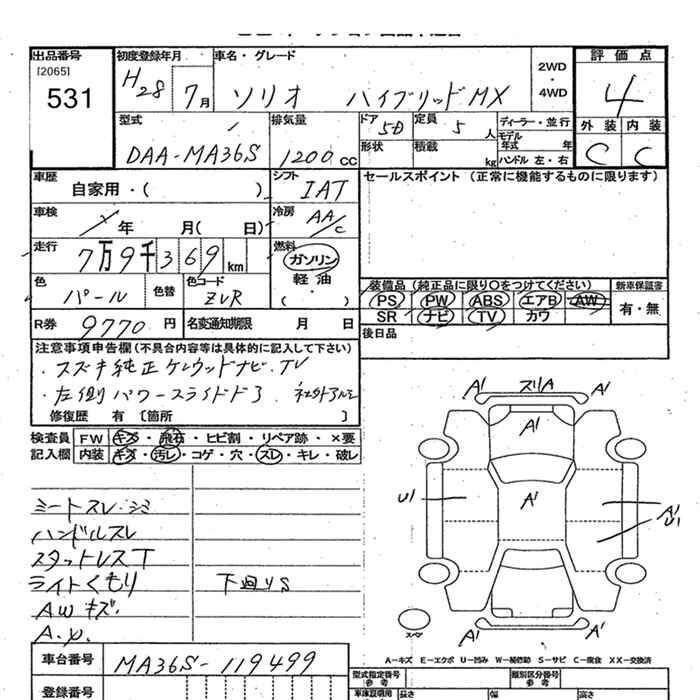 出品番号
[2065]
531
初度登録年月
H28 7月
車名・グレード
ソリオ ハイブリッドMX
2WD
・
4WD
評価点
4
外装 内装
C C
型式
DAA-MA36S
排気量
1200cc
ドア
5D
定員
5人
形状
積載
kg
ディーラー・並行
モデル年式 年
ハンドル 左・右
車歴
自家用・( )
シフト
IAT
車検
年 月( 日)
冷房
AA/C
走行
7万9千369km
燃料
ガソリン
軽油
( ・ )
色
パール
色替
色コード
ZVR
R券 9770円
名変通知期限 月 日
セールスポイント(正常に機能するものに限ります)
装備品(純正品に限り○をつけてください)
PS PW ABS エアB AW
SR ナビ TV カワ
新車保証書
有・無
後日品
注意事項申告欄(不具合内容等は具体的に記入して下さい)
・スズキ純正ケンウッドナビ、TV
・左側パワースライドドア 社外アルミ
修復歴 有 [箇所 ]
検査員 FW キズ・飛石・ヒビ割・リペア跡・×要
記入欄 内装 キズ・汚レ・コゲ・穴・スレ・キレ・破レ
シートスレ・シミ
ハンドルスレ
スタットレスT
ライトくもり 下廻りS
AWキズ.
A.U.
A1 スリA A1
A1
U1 A1 A1
U1
スペア
A-キズ E-エクボ U-凹み W-補修跡 S-サビ C-腐食 XX-交換済
車台番号 MA36S-119499
登録番号
型式指定番号
参考
類別区分番号
参考
車庫証明用
長さ 幅 高さ